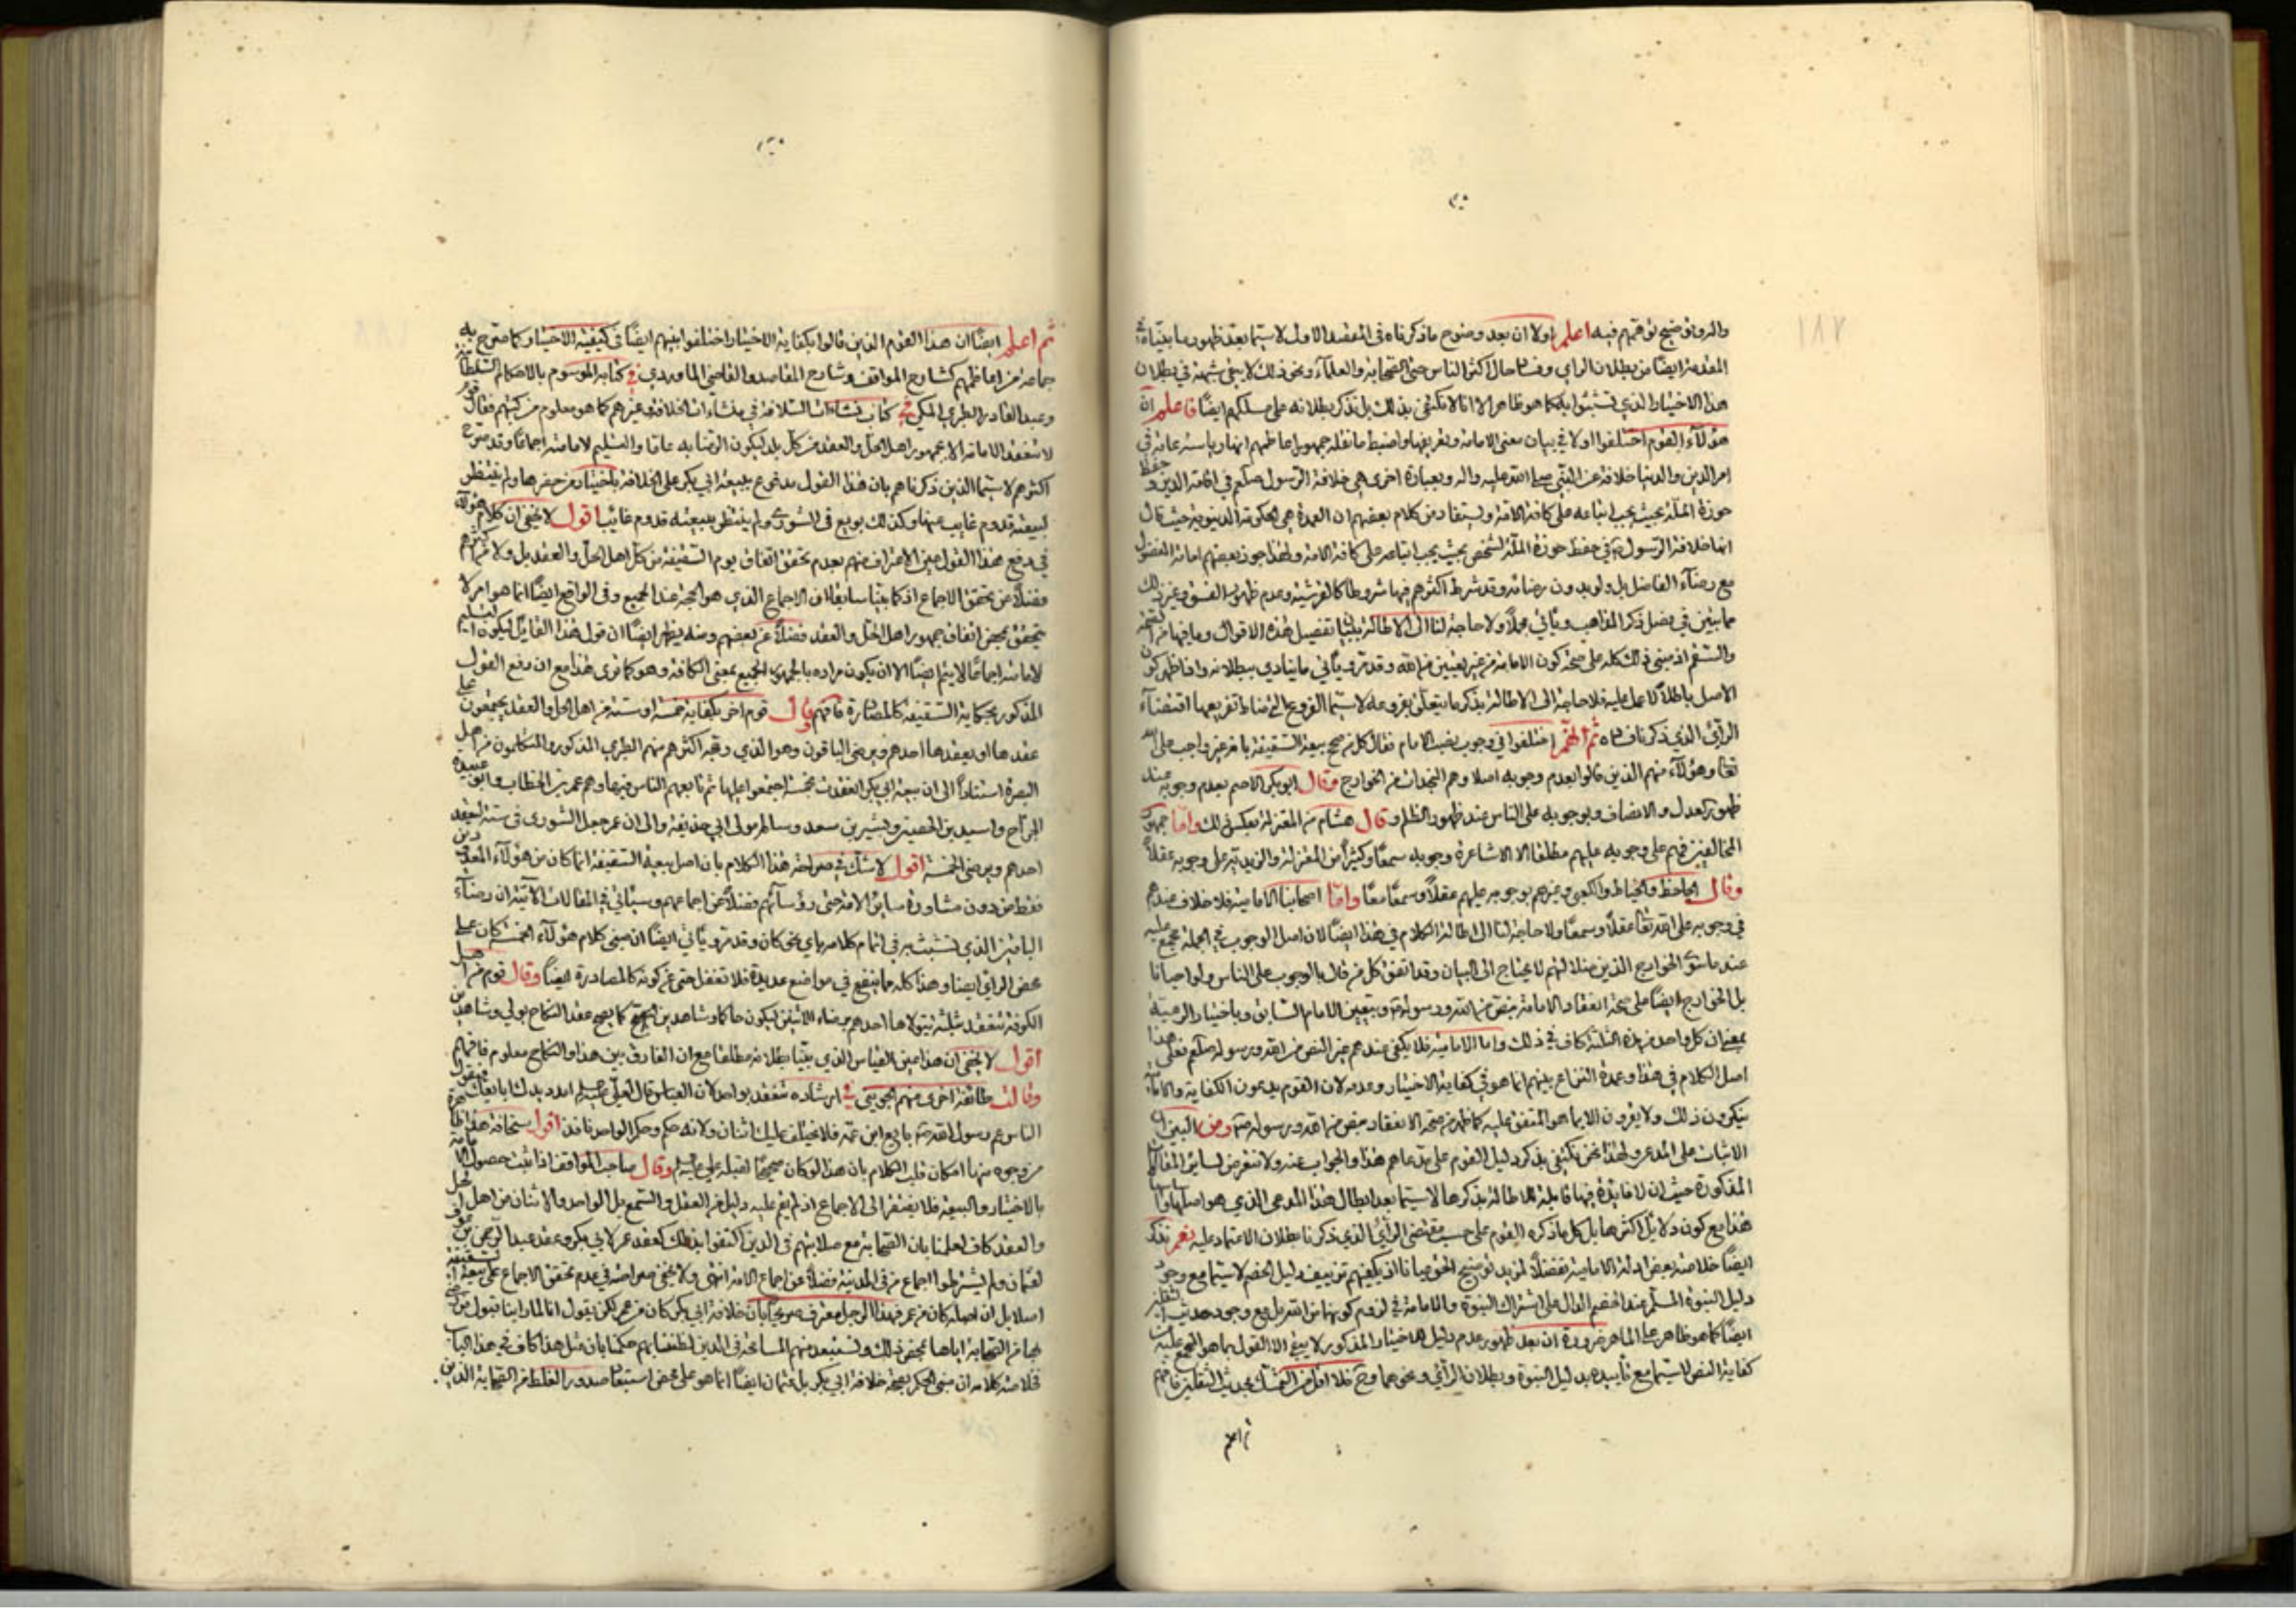 والرد وتوضيح توهمهم فيه اعلم اولا ان بعد وضوح ما ذكرناه في المقصد الاول لا سيما بعد ظهور ما بيناه في
المقدمة ايضا من بطلان الراي وفساد حال اكثر الناس حتى الصحابة والعلماء ونحو ذلك لا يبقى شبهة في بطلان
هذا الاختيار الذي تشبثوا به كما هو ظاهر الا انا لا نكتفي بذلك بل نذكر بطلانه على مسلكهم ايضا فاعلم ان
هؤلاء القوم اختلفوا اولا في بيان معنى الامامة وتعريفها واضبط ما نقله جمهور اعاظمهم انها رياسة عامة في
امر الدين والدنيا خلافة عن النبي صلى الله عليه واله وبعبارة اخرى هي خلافة الرسول صلعم في اقامة الدين وحفظ
حوزة الملة بحيث يجب اتباعه على كافة الامة ويستفاد من كلام بعضهم ان العمدة هي الحكومة الدنيوية حيث قال
انها خلافة الرسول في حفظ حوزة الملة لشخص بحيث يجب اتباعه على كافة الامة ولهذا جوز بعضهم امامة المفضول
مع رضاء الفاضل بل ولو بدون رضائه وقد شرط اكثرهم فيها شروطا كالقرشية وعدم ظهور الفسق وغير ذلك
مما بين في فصل ذكر المذاهب وياتي مجملا ولا حاجة لنا الى الاطالة تفصيل هذه الاقوال وما فيها من
مبنى ذلك كله على صحة كون الامامة من غير تعيين من الله وقد مر وياتي ما ينادي ببطلانه واذا ظهر كون
الاصل باطلا فلا حاجة الى الاطالة بذكر ما يتعلق بفروعه لا سيما الفروع التي مناط تفريعها اقتضاء
الراي الذي ذكرنا فساده ثم انهم اختلفوا في وجوب نصب الامام فقال كل من صحح بيعة السقيفة بانه غير واجب على الله
تعالى وهؤلاء منهم الذين قالوا بعدم وجوبه اصلا وهم النجدات من الخوارج وقال ابو بكر الاصم بعدم وجوبه عند
ظهور العدل والانصاف وبوجوبه على الناس عند ظهور الظلم وقال هشام من المعتزلة بعكس ذلك واما جمهور
المخالفين فهم على وجوبه عليهم مطلقا الا ان الاشاعرة وجوبه سمعا وكثيرا من المعتزلة والزيدية على وجوبه عقلا
وقال الجاحظ والخياط والكعبي وغيرهم بوجوبه عليهم عقلا وسمعا معا واما اصحابنا الامامية فلا خلاف عندهم
في وجوبه على الله تعالى عقلا وسمعا ولا حاجة لنا الى اطالة الكلام في هذا ايضا لان اصل الوجوب في الجملة مجمع عليه
عند ما سوى الخوارج الذين ضلالتهم لا يحتاج الى البيان وقد اتفق كل من قال بالوجوب على الناس ولو احيانا
بل الخوارج ايضا على صحة انعقاد الامامة بنص من الله ورسوله وبتعيين الامام السابق وباختيار الرعية
بمعنى ان كل واحد من هذه الثلثة كاف في ذلك واما الامامية فلا يكفي عندهم غير النص من الله ورسوله صلعم فعلى هذا
اصل الكلام في هذا وعمدة النزاع بينهم انما هو في كفاية الاختيار وعدمه لان القوم يدعون الكفاية والامامية
ينكرون ذلك ولا يقرون الا بما هو المتفق عليه كما ظهر من صحة الانعقاد بنص من الله ورسوله ومن البين ان
الاثبات على المدعي ولهذا نحن نكتفي بذكر دليل القوم على مدعاهم هذا والجواب عنه ولا نتعرض لسائر المقالات
المذكورة حيث ان لا فايدة فيها قابلة للاطالة بذكرها لا سيما بعد ابطال هذا المدعى الذي هو اصلها
هذا مع كون دلايل اكثرها بل كل ما ذكره القوم على حسب مقتضى الراي الذي ذكرنا بطلان الاعتماد عليه نعم نذكر
ايضا خلاصة بعض ادلة الامامية تفضلا لمزيد توضيح الحق عيانا اذ يكفيهم تزييف دليل الخصم لا سيما مع وجود
دليل النبوة المسلم عند الخصم الدال على اشتراك النبوة والامامة في لزوم كونهما من الله بل مع وجود حديث الثقلين
ايضا كما هو ظاهر على الماهر ضرورة ان بعد ظهور عدم دليل للاختيار المذكور لا يبقى الا القول بما هو المجمع عليه من
كفاية النص لا سيما مع تاييده بدليل النبوة وبطلان الراي ونحوهما وح فلا اقل من التمسك بحديث الثقلين فافهم
ثم اعلم
ثم اعلم ايضا ان هذا القوم الذين قالوا بكفاية الاختيار اختلفوا بينهم ايضا في كيفية الاختيار كما صرح به
جماعة من اعاظمهم كشارح المواقف وشارح المقاصد والقاضي الماوردي في كتابه الموسوم بالاحكام السلطانية
وعبد القادر الطبري المكي في كتاب نشات السلافة في منشات الخلافة وغيرهم كما هو معلوم من كتبهم فقال قوم
لا تنعقد الامامة الا بجمهور اهل الحل والعقد من كل بلد ليكون الرضا به عاما والتسليم لامامته اجماعا وقد صرح
اكثرهم لا سيما الذين ذكرناهم بان هذا القول مدفوع ببيعة ابي بكر على الخلافة باختيار من حضرها ولم ينتظر
لبيعته قدوم غايب عنها وكذلك بويع في الشورى ولم ينتظر ببيعته قدوم غائب اقول لا يخفى ان كلام هؤلاء
في دفع هذا القول عين الاعتراف منهم بعدم تحقق اتفاق يوم السقيفة من كل اهل الحل والعقد بل ولا من اكثرهم
فضلا عن تحقق الاجماع اذ كما بينا سابقا ان الاجماع الذي هو الحجة عند الجميع وفي الواقع ايضا انما هو امر لا
يتحقق بمحض اتفاق جمهور اهل الحل والعقد فضلا عن بعضهم ومنه يظهر ايضا ان قول هذا القايل ليكون التسليم
لامامته اجماعا لا يتم ايضا الا ان يكون مراده بالجمهور الجميع بمعنى الكافة وهو كما ترى هذا مع ان دفع القول
المذكور بحكاية السقيفة كالمصادرة فافهم وقال قوم اخر بكفاية خمسة او ستة من اهل الحل والعقد يجتمعون على
عقدها او يعقدها احدهم ويرضى الباقون وهو الذي وقع اكثرهم منهم الطبري المذكور والمتكلمون من اهل
البصرة استنادا الى ان بيعة ابي بكر انعقدت بخمسة اجتمعوا عليها ثم تابعهم الناس فيها وهم عمر بن الخطاب وابو عبيدة
الجراح واسيد بن الحضير وبشير بن سعد وسالم مولى ابي حذيفة والى ان عمر جعل الشورى في ستة ليعقد
احدهم ويرضى الخمسة اقول لا شك في صراحة هذا الكلام بان اصل بيعة السقيفة انما كان من هؤلاء المعدودين
فقط من دون مشاورة ساير الامة حتى رؤسائهم فضلا عن اجماعهم وسياتي في المقالات الاتية ان رضاء
الباقين الذي تشبث به في اتمام كلامه باي نحو كان وقد مر وياتي ايضا ان مبنى كلام هؤلاء الخمسة كان على
محض الراي ايضا وهذا كله مما ينفع في مواضع عديدة فلا تغفل حتى عن كونه كالمصادرة ايضا وقال قوم من اهل
الكوفة تنعقد بثلثة يتولاها احدهم برضاء الاثنين ليكون حاكما وشاهدين كما يصح عقد النكاح بولي وشاهدين
اقول لا يخفى ان هذا عين القياس الذي بينا بطلانه مطلقا مع ان الفارق بين هذا والنكاح معلوم فافهم
وقالت طائفة اخرى منهم الجويني في ارشاده تنعقد بواحد لان العباس قال لعلي امدد يدك ابايعك فيقول
الناس عم رسول الله بايع ابن عمه فلا يختلف عليك اثنان ولانه حكم وحكم الواحد نافذ اقول سخافة هذا ظاهرة
من وجوه منها امكان قلب الكلام بان هذا لو كان صحيحا لقبله علي وقال صاحب المواقف اذا ثبت حصول الامامة
بالاختيار والبيعة فلا يفتقر الى الاجماع اذ لم يقم عليه دليل من العقل والسمع بل الواحد والاثنان من اهل الحل
والعقد كاف لعلمنا بان الصحابة مع صلابتهم في الدين اكتفوا بذلك كعقد عمر لابي بكر وعقد عبد الرحمن بن عوف
لعثمان ولم يشترطوا اجماع من في المدينة فضلا عن اجماع الامة انتهى ولا يخفى صراحته في عدم تحقق الاجماع على بيعة السقيفة
اصلا بل ان اصله كان من عمر فهذا الرجل معترف صريحا بان خلافة ابي بكر كان من عمر لكن يقول انا لما راينا قبول من
الصحابة اياها بمحض ذلك ونستبعد منهم المسامحة في الدين لظننا بهم حكمنا بان مثل هذا كاف في هذا الباب
فخلاصة كلامه ان مبنى الحكم بصحة خلافة ابي بكر بل عثمان ايضا انما هو على محض استبعاد صدور الغلط من الصحابة الذين